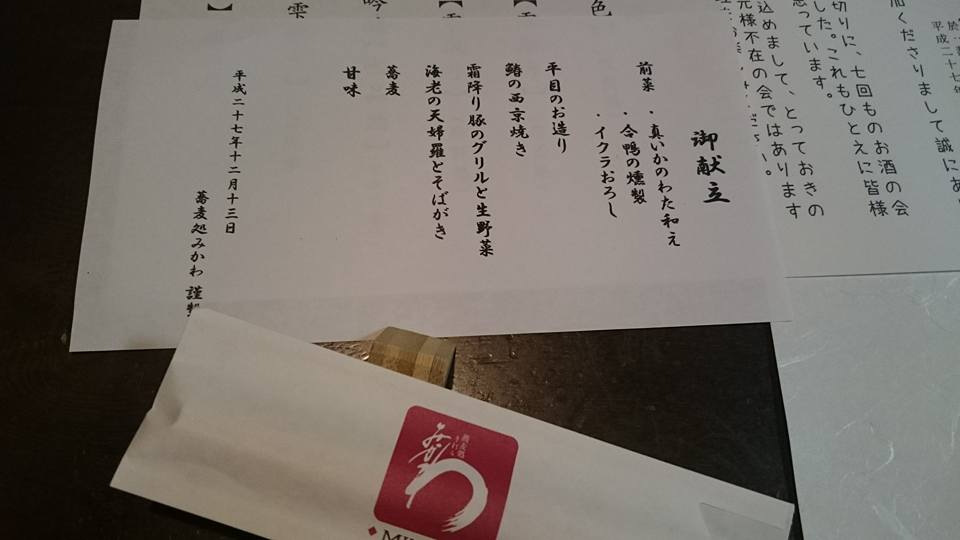 御献立
前菜 ・真いかのわた和え
・合鴨の燻製
・イクラおろし
平目のお造り
鰆の西京焼き
霜降り豚のグリルと生野菜
海老の天婦羅とそばがき
蕎麦
甘味
平成二十七年十二月十三日
蕎麦処みかわ 謹製
加くださりまして誠にあ
切りに、七回ものお酒の会
した。これもひとえに皆様
思っています。
込めまして、とっておきの
元様不在の会ではあります
平成二十七年
色
雫
吟
蕎麦処
みかわ